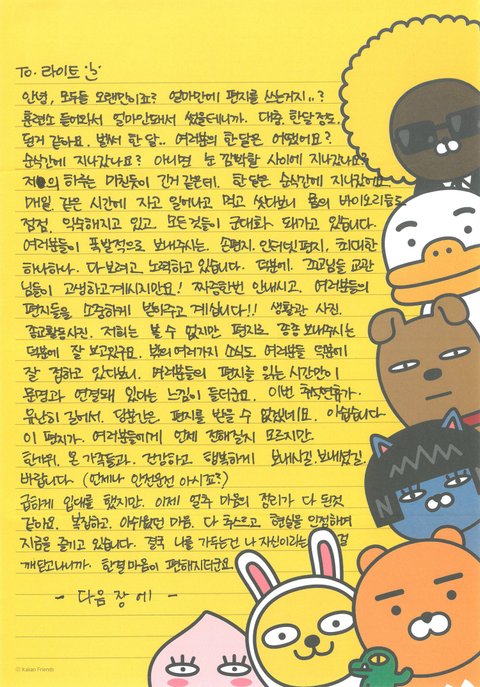 To. 라이트
안녕, 모두들 오랜만이죠? 얼마만에 편지를 쓰는거지..?
훈련소 들어와서 얼마안돼서 썼을테니까. 대충 한달정도
된거 같아요. 벌써 한 달.. 여러분의 한달은 어땠어요?
순식간에 지나갔나요? 아니면 눈 깜빡할 사이에 지나갔나요?
저의 하루는 미친듯이 긴거 같은데. 한 달은 순식간에 지나갔어요.
매일 같은 시간에 자고 일어나고 먹고 싸다보니 몸의 바이오리듬도
점점 익숙해지고 있고 모든것들이 군대화 돼가고 있습니다.
여러분들이 폭발적으로 보내주시는. 손편지. 인터넷편지. 최대한
하나하나. 다 보려고. 노력하고 있습니다. 덕분에. 조교님들 교관
님들이 고생하고계시지만요! 짜증한번 안내시고. 여러분들의
편지들을 소중하게 받아주고 계십니다!! 생활관 사진.
종교활동사진. 저희는 볼 수 없지만 편지로 종종 보내주시는
덕분에 잘 보고있구요. 밖의 여러가지 소식도 여러분들 덕분에
잘 접하고 있다보니. 여러분들의 편지를 읽는 시간만이
문명과 연결돼 있다는 느낌이 들더군요. 이번 추석연휴가.
유난히 길어서. 당분간은 편지를 받을 수 없겠네요. 아쉽습니다
이 편지가. 여러분들에게 언제 전해질지 모르지만.
한가위. 온 가족들과. 건강하고 행복하게 보내시길. 보내셨길.
바랍니다. (언제나 안전운전 아시죠?)
급하게 입대를 했지만. 이제 얼추 마음의 정리가 다 된것
같아요. 복잡하고. 아쉬웠던 마음. 다 추스르고. 현실을 인정하며
지금을 즐기고 있습니다. 결국 나를 가두는건 나 자신이라는 걸
깨닫고나니까. 한결 마음이 편해지더군요.
- 다음 장에 -
ⓒ Kakao Friends